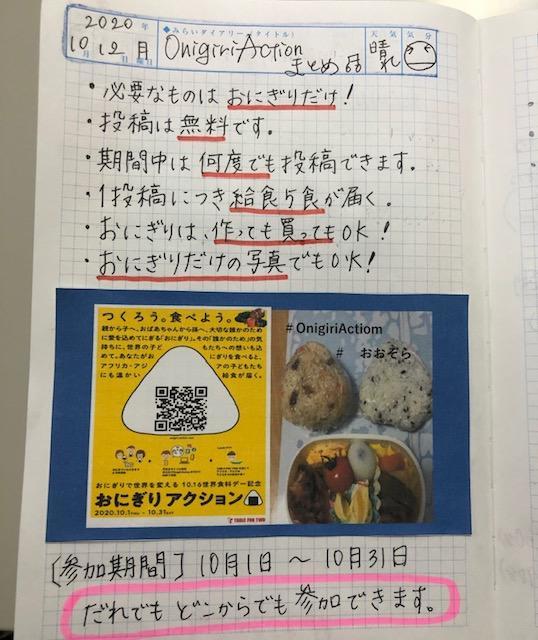 2020年
10月12日月曜日
◆みらいダイアリー(タイトル)
OnigiriAction
まとめ
天気
晴れ
気分
・必要なものは おにぎりだけ！
・投稿は無料です。
・期間中は 何度でも投稿できます。
・1投稿につき給食5食が届く。
・おにぎりは、作っても買ってもOK！
・おにぎりだけの写真でもOK！
つくろう。食べよう。
親から子へ、おばあちゃんから孫へ、大切な誰かのため
に愛を込めてにぎる「おにぎり」。その「誰かのため」の気
持ちに、世界の子ど
もたちへの想いも込
めて。あなたがお
にぎりを食べると、
アフリカ・アジ
アの子どもたち
にも温かい
給食が届く。
onigiri-action.com
おにぎりで世界を変える 10.16世界食料デー記念
おにぎりアクション
2020.10.1THU - 10.31SAT
TABLE FOR TWO
#OnigiriActiom
# おおぞら
[参加期間] 10月1日 ～ 10月31日
だれでも どこからでも 参加できます。